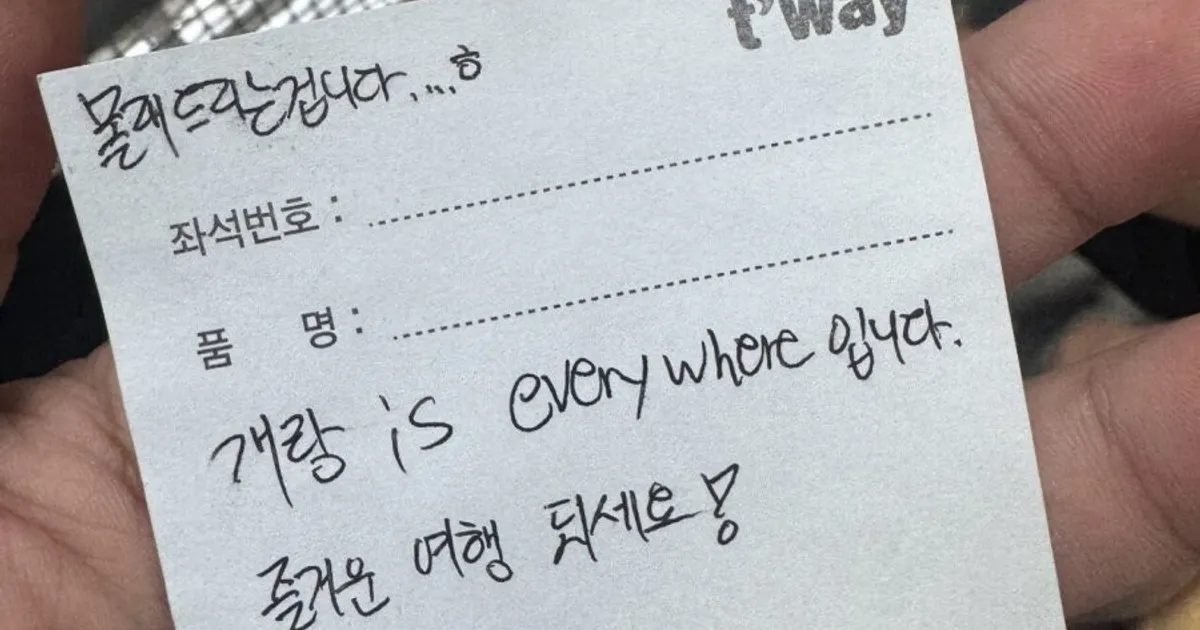 t'way
몰래 드리는겁니다.... ㅎ
좌석번호 :
품 명 :
개랑 is everywhere 입니다.
즐거운 여행 되세요!